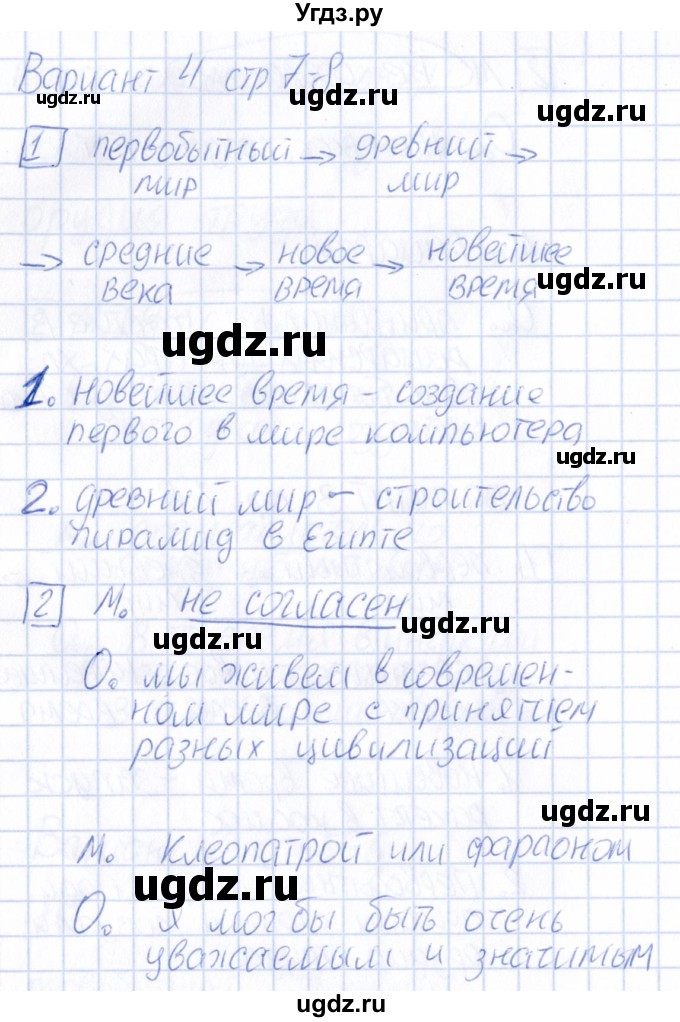 Угдз.ру
Вариант 4 стр 7-8
ugdz.ru ugdz.ru
1 первобытный → древний →
мир мир
ugdz.ru ugdz.ru
→ средние → новое → новейшее
века время время
ugdz.ru
ugdz.ru
1. новейшее время - создание
первого в мире компьютера
ugdz.ru
ugdz.ru
2. древний мир - строительство
пирамид в Египте
ugdz.ru
2 М. не согласен
ugdz.ru
ugdz.ru
О. мы живем в современ-
ном мире с принятием
разных цивилизаций
ugdz.ru
ugdz.ru
М. Клеопатрой или фараоном
ugdz.ru
О. я мог бы быть очень
уважаемым и значимым
ugdz.ru
ugdz.ru
ugdz.ru